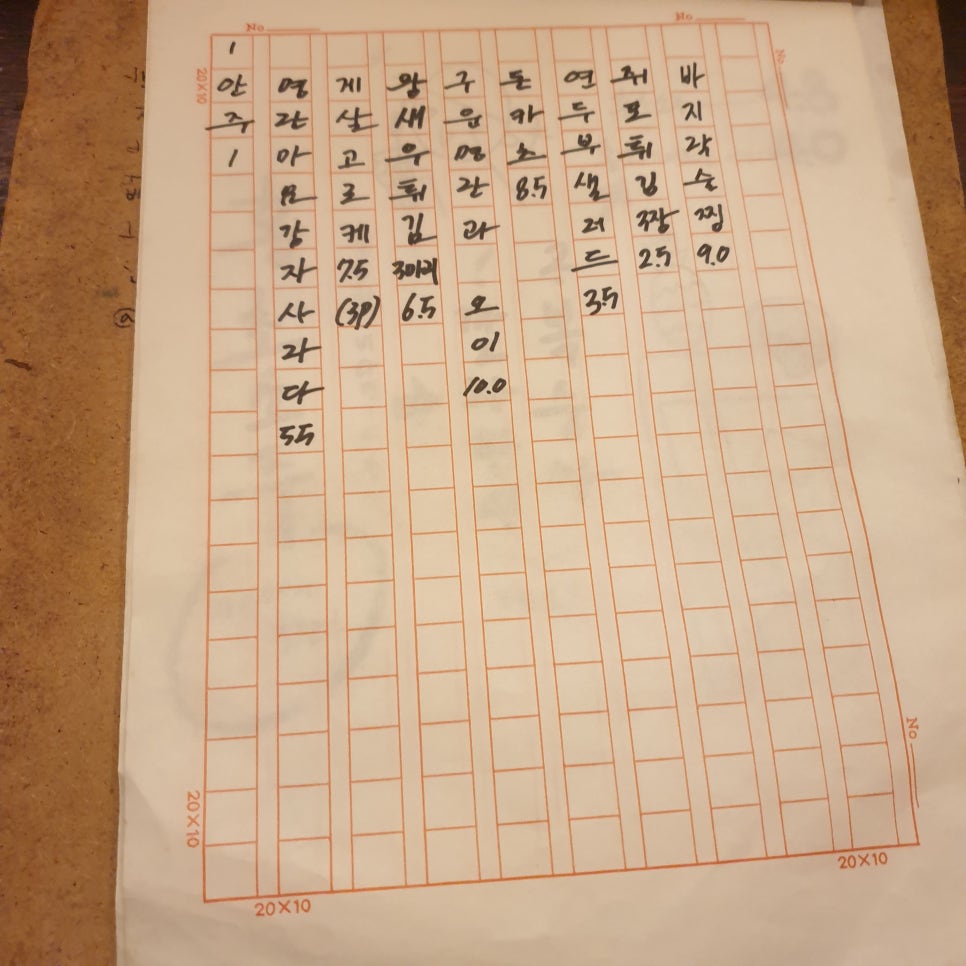 | 안주 |
명란마요감자사라다 5.5
게살고로케 7.5 (3P)
왕새우튀김 3마리 6.5
구운명란과 오이 10.0
돈카츠 8.5
연두부샐러드 3.5
쥐포튀김 3장 2.5
바지락술찜 9.0
No
No
No
No
20×10
20×10
20×10
20×10